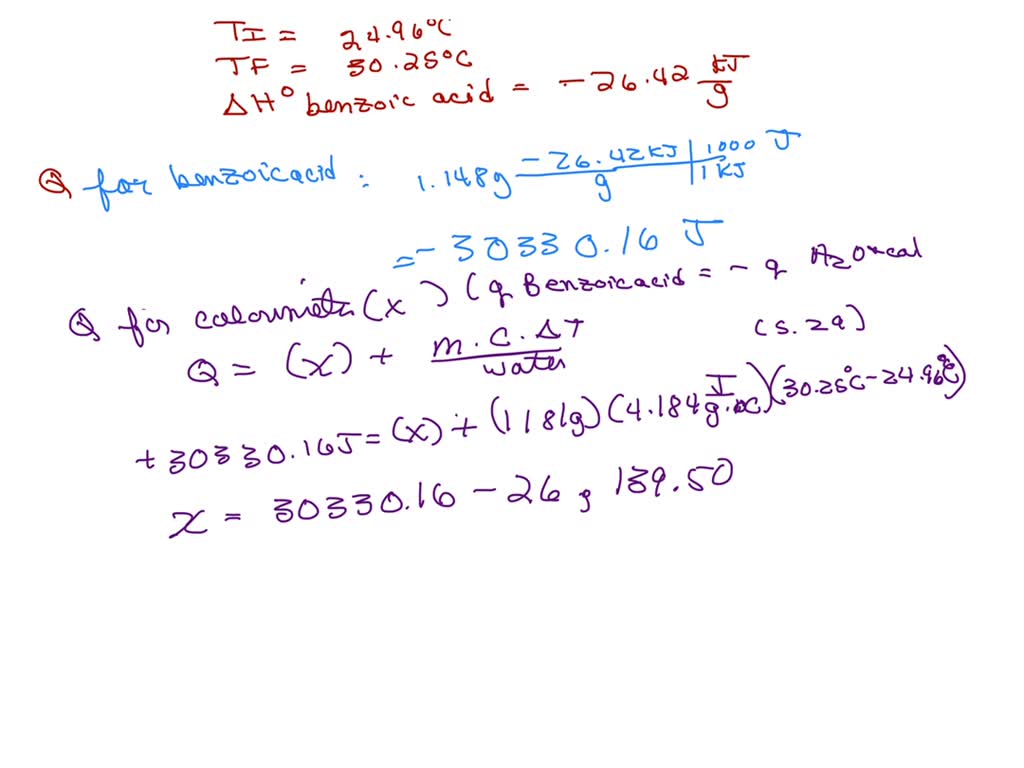 TI = 24.96°C
TF = 30.25°C
ΔH° benzoic acid = -26.42 kJ/g
Q for benzoic acid : 1.148g -26.42 kJ/g | 1000 J/1 kJ
= -30330.16 J
Q for calorimeter (x) (q Benzoic acid = - q H2O + cal
Q = (x) + m.c.ΔT/water
(5.29)
+30330.16J = (x) + (1181g)(4.184 J/g.°C)(30.25°C-24.96°C)
x = 30330.16 - 26,139.50